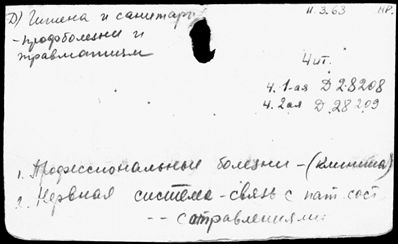 Д) Гигиена и санитар
II. 3. 63 НР.
- профболезни и
травматизм
Чит.
ч. 1-ая Д 28208
ч. 2ая Д 28209
1. Профессиональные болезни - (клиника)
2. Нервная система - связь с пат. сост.
-- с отравлениями